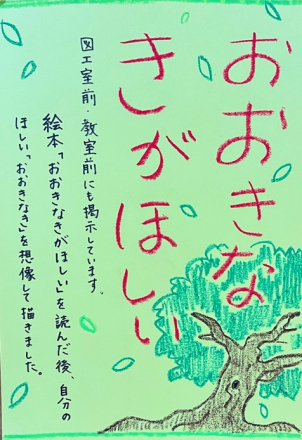 おおきな
きがほしい
図工室前・教室前にも掲示しています。
絵本「おおきなきがほしい」を読んだ後、自分の
ほしい「おおきなき」を想像して描きました。